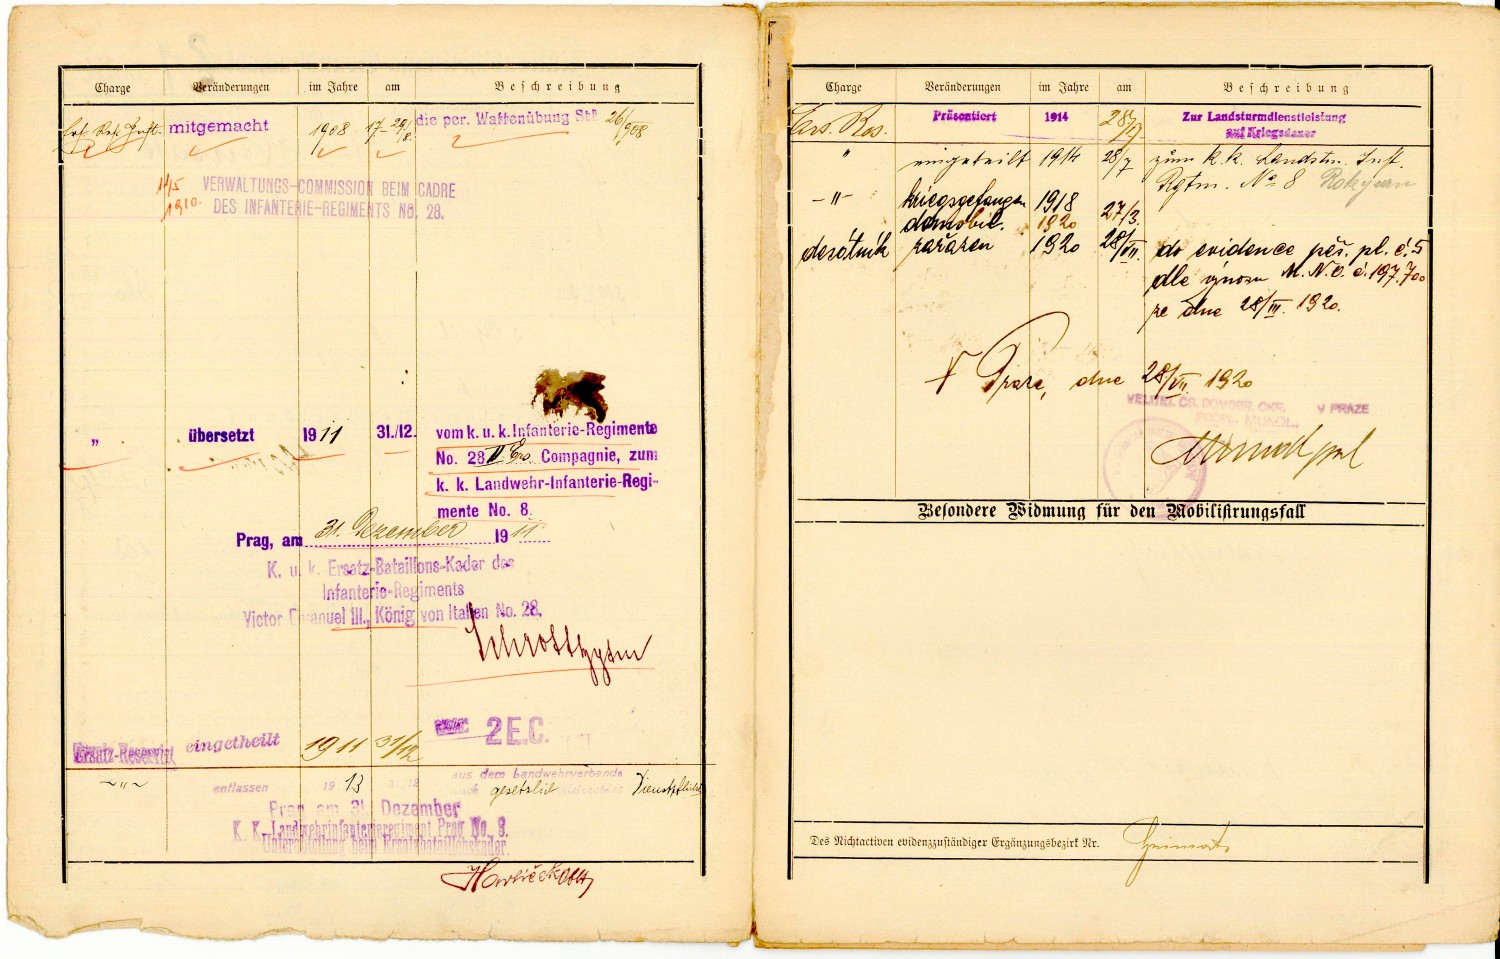 Charge Veränderungen im Jahre am Beschreibung
mitgemacht 1908 17-29/8. die per. Waffenübung 26/908
1910.
VERWALTUNGS-COMMISSION BEIM CADRE
DES INFANTERIE-REGIMENTS No. 28.
„ übersetzt 1911 31./12. vom k. u. k. Infanterie-Regimente
No. 28 Compagnie, zum
k. k. Landwehr-Infanterie-Regi-
mente No. 8.
Prag, am 31. Dezember 1911
K. u. k. Ersatz-Bataillons-Kader des
Infanterie-Regiments
Victor Emanuel III., König von Italien No. 28.
2 E.C.
Ersatz-Reservist eingetheilt 1911 31/12
-"- entlassen 1913 31.12 aus dem Landwehrverbande
nach gesetzlich Dienstpflicht
Prag am 31. Dezember
K. K. Landwehrinfanterieregiment Prag No. 8.
Unterabteilung beim Ersatzbataillonskader.
Charge Veränderungen im Jahre am Beschreibung
Ers. Res. Präsentiert 1914 28/7. Zur Landsturmdienstleistung
auf Kriegsdauer
" eingeteilt 1914 28/7 zum k. k. Landst. Inft.
Rgtm. No 8 Rokycan
-"- kriegsgefangen 1918
demobil. 1920 27/3.
desátník zařazen 1920 28/VII. do evidence pěš. pl. č. 5
dle výnosu M. N. O. č. 197.700
ze dne 28/III. 1920.
V Praze, dne 28/VII. 1920
VELITEL ČS. DOPLŇ. OKR. V PRAZE
Besondere Widmung für den Mobilisirungsfall
Des Nichtactiven evidenzzuständiger Ergänzungsbezirk Nr.